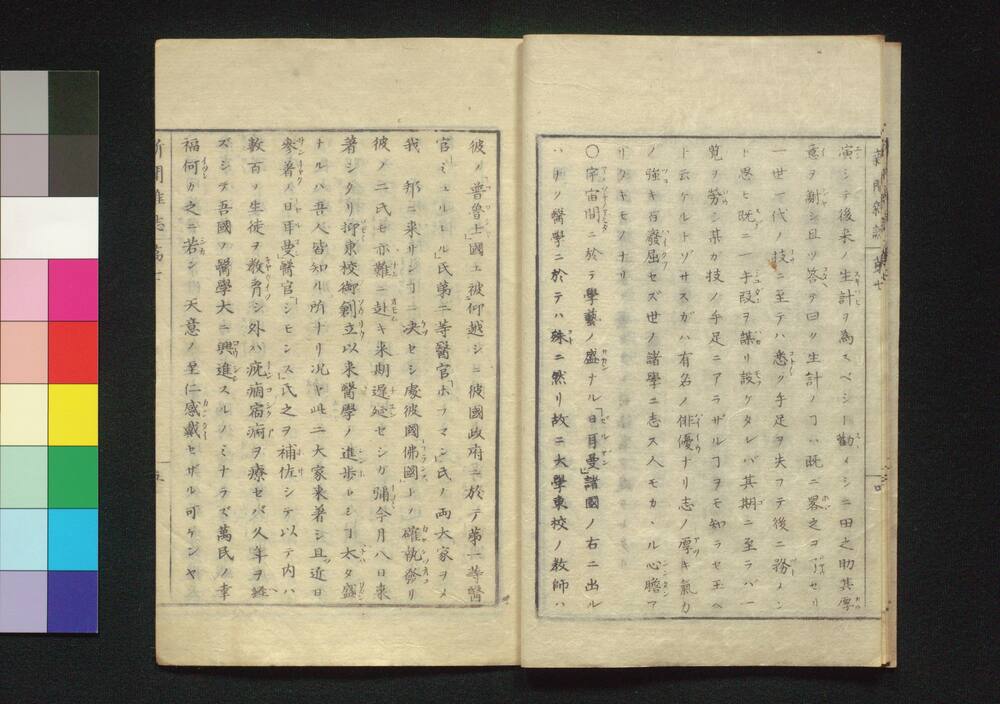 新聞雑誌 第七
演シテ後来ノ生計ヲ為スベシト勸メシニ田之助其厚
意ヲ謝シ且ツ答テ曰ク生計ノヿハ既ニ畧之ヲ了セリ
一世一代ノ技ニ至テハ悉ク手足ヲ失フテ後ニ務メン
ト思ヒ既ニ一手段ヲ謀リ設ケタレバ其期ニ至ラバ一
覧ヲ労シ某カ技ノ手足ニアラザルヿヲモ知ラセ玉ヘ
ト云ケルトゾサスガハ有名ノ俳優ナリ志ノ厚キ氣力
ノ強キ百發屈セズ世ノ諸學ニ志ス人モカヽル心膽ア
リタキモノナリ
〇宇宙間ニ於テ學藝ノ盛ナル日耳曼諸國ノ右ニ出ル
ハナシ醫學ニ於テハ殊ニ然リ故ニ大學東校ノ教師ハ
四
彼ノ普魯士國ヱ被仰越シニ彼國政府ニ於テ第一等醫
官ミュルレル氏第二等醫官ホフマン氏ノ両大家ヲメ
我 邦ニ来リンヿニ决セシ處彼國佛國トノ確執發リ
彼ノ二氏モ亦難ニ赴キ来期遅延セシガ彌今月八日来
著シタリ抑東校御創立以来醫學ノ進歩セシヿ太タ盛
ナルハ吾人皆知ル所ナリ况ヤ此二大家来著シ且近日
參著ノ日耳曼醫官シモンス氏之ヲ補佐シテ以テ内ハ
數百ノ生徒ヲ教育シ外ハ疣痼宿痾ヲ療セバ久年ヲ經
ズシテ吾國ノ醫學大ニ興進スルノミナラズ萬民ノ幸
福何カ之ニ若ン 天意ノ至仁感戴セザル可ケンヤ
新聞雑誌 第七
五